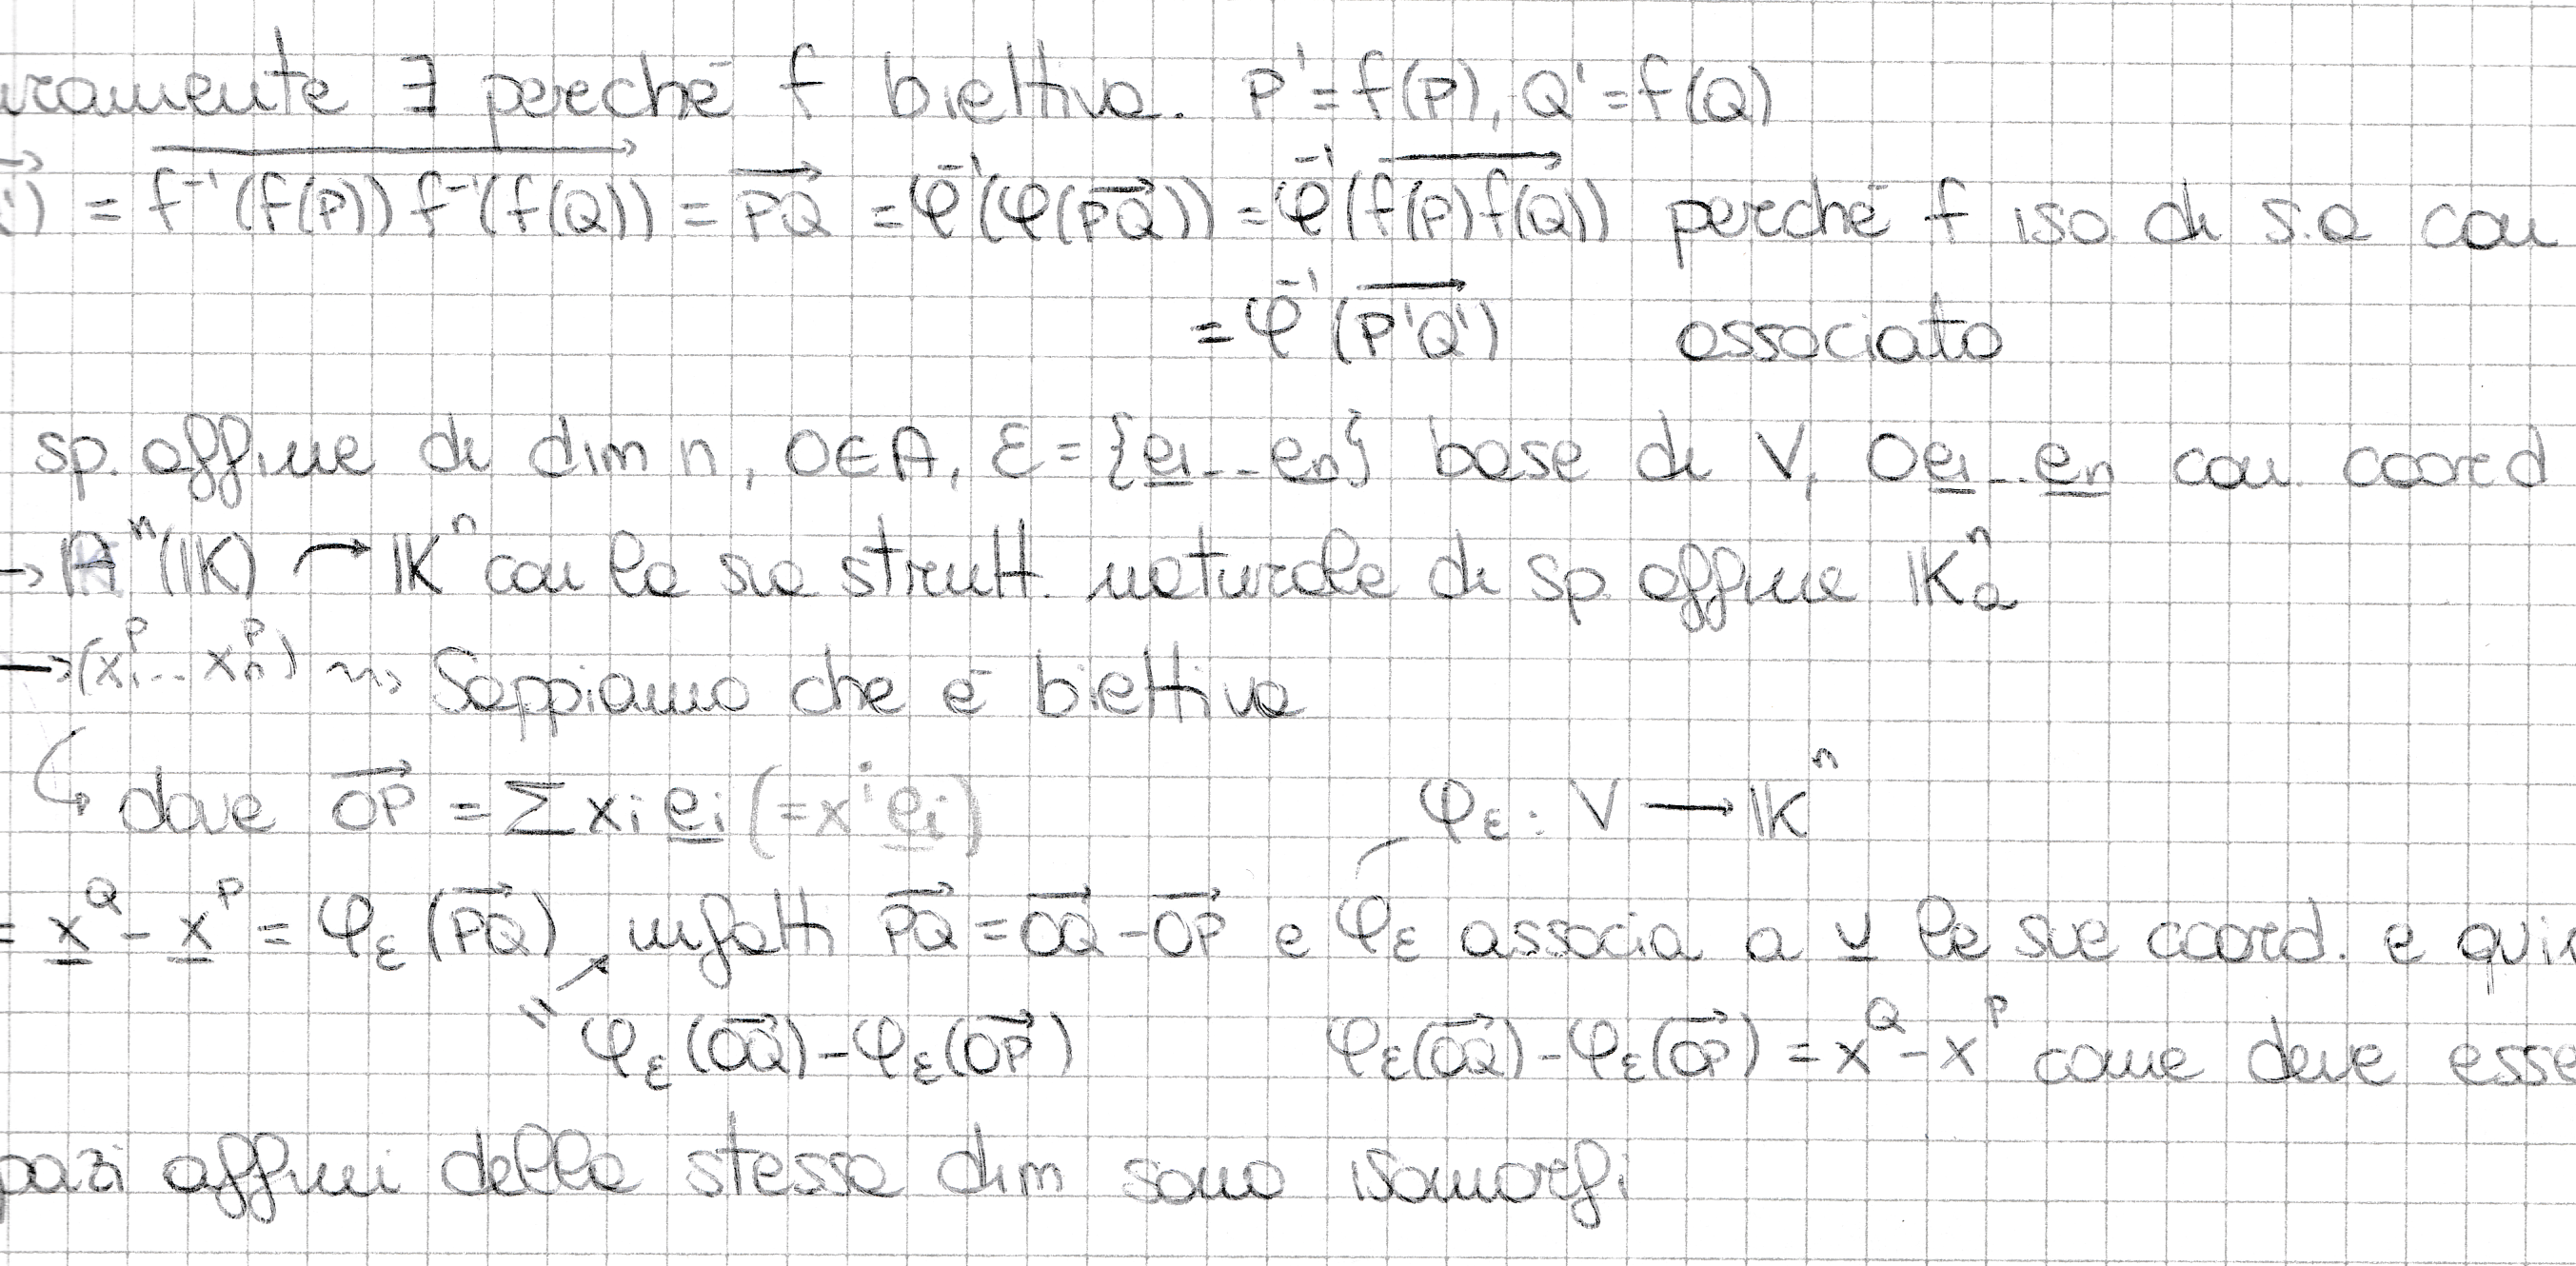 uramente ∃ perché f biettiva. P' = f(P), Q' = f(Q)
') = f⁻¹(f(P)) f⁻¹(f(Q)) = PQ = φ⁻¹(φ(PQ)) = φ⁻¹(f(P)f(Q)) perché f iso di s.a con
= φ⁻¹(P'Q') associato
sp. affine di dim n, O∈A, ℰ = {e₁...eₙ} base di V, Oe₁...eₙ con coord
→ Aⁿ(𝕂) → 𝕂ⁿ con la sua strutt. naturale di sp. affine 𝕂ⁿₐ
→ (x₁ᴾ... xₙᴾ) ⇝ Sappiamo che è biettiva
dove OP = Σ xᵢ eᵢ (= xⁱ eᵢ) φ_ℰ : V → 𝕂ⁿ
= x^Q - x^P = φ_ℰ(PQ) infatti PQ = OQ - OP e φ_ℰ associa a v le sue coord. e qui
= φ_ℰ(OQ) - φ_ℰ(OP) φ_ℰ(OQ) - φ_ℰ(OP) = x^Q - x^P come deve esse
pazi affini della stessa dim sono isomorfi